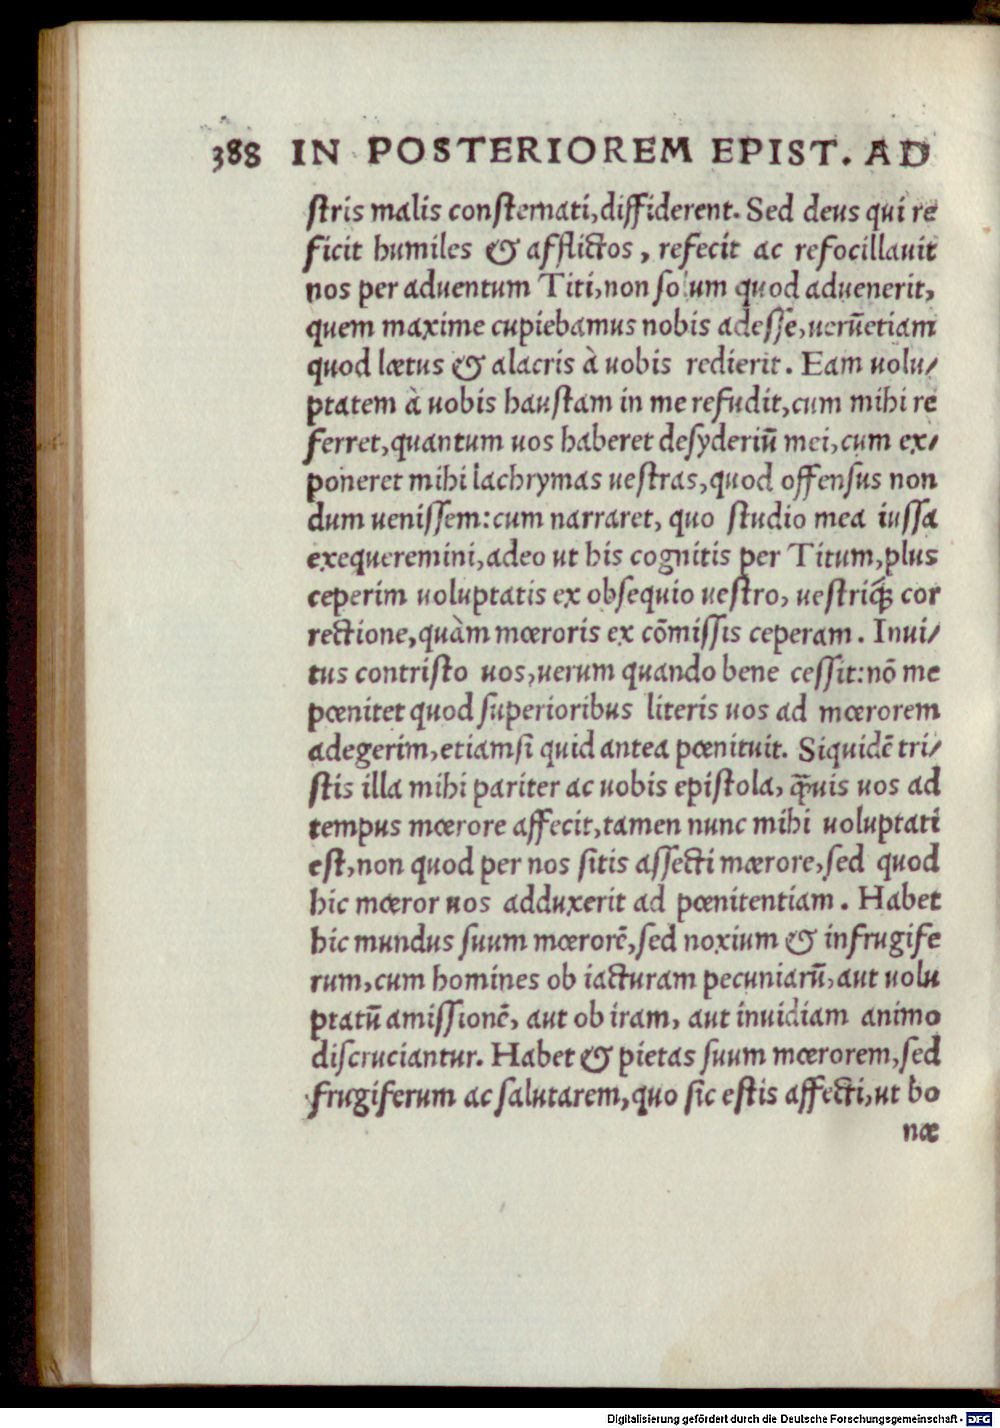 388 IN POSTERIOREM EPIST. AD
stris malis consternati, diffiderent. Sed deus qui re
ficit humiles & afflictos, refecit ac refocillauit
nos per aduentum Titi, non solum quod aduenerit,
quem maxime cupiebamus nobis adesse, uerũetiam
quod lætus & alacris à uobis redierit. Eam uolu/
ptatem à uobis haustam in me refudit, cum mihi re
ferret, quantum uos haberet desyderiũ mei, cum ex/
poneret mihi lachrymas uestras, quod offensus non
dum uenissem: cum narraret, quo studio mea iussa
exequeremini, adeo ut his cognitis per Titum, plus
ceperim uoluptatis ex obsequio uestro, uestriq́; cor
rectione, quàm mœroris ex cõmissis ceperam. Inui/
tus contristo uos, uerum quando bene cessit: nõ me
pœnitet quod superioribus literis uos ad mœrorem
adegerim, etiamsi quid antea pœnituit. Siquidẽ tri/
stis illa mihi pariter ac uobis epistola, q̃uis uos ad
tempus mœrore affecit, tamen nunc mihi uoluptati
est, non quod per nos sitis assecti mærore, sed quod
hic mœror uos adduxerit ad pœnitentiam. Habet
hic mundus suum mœrorẽ, sed noxium & infrugife
rum, cum homines ob iacturam pecuniarũ, aut uolu
ptatũ amissionẽ, aut ob iram, aut inuidiam animo
discruciantur. Habet & pietas suum mœrorem, sed
frugiferum ac salutarem, quo sic estis affecti, ut bo
næ
Digitalisierung gefördert durch die Deutsche Forschungsgemeinschaft - DFG